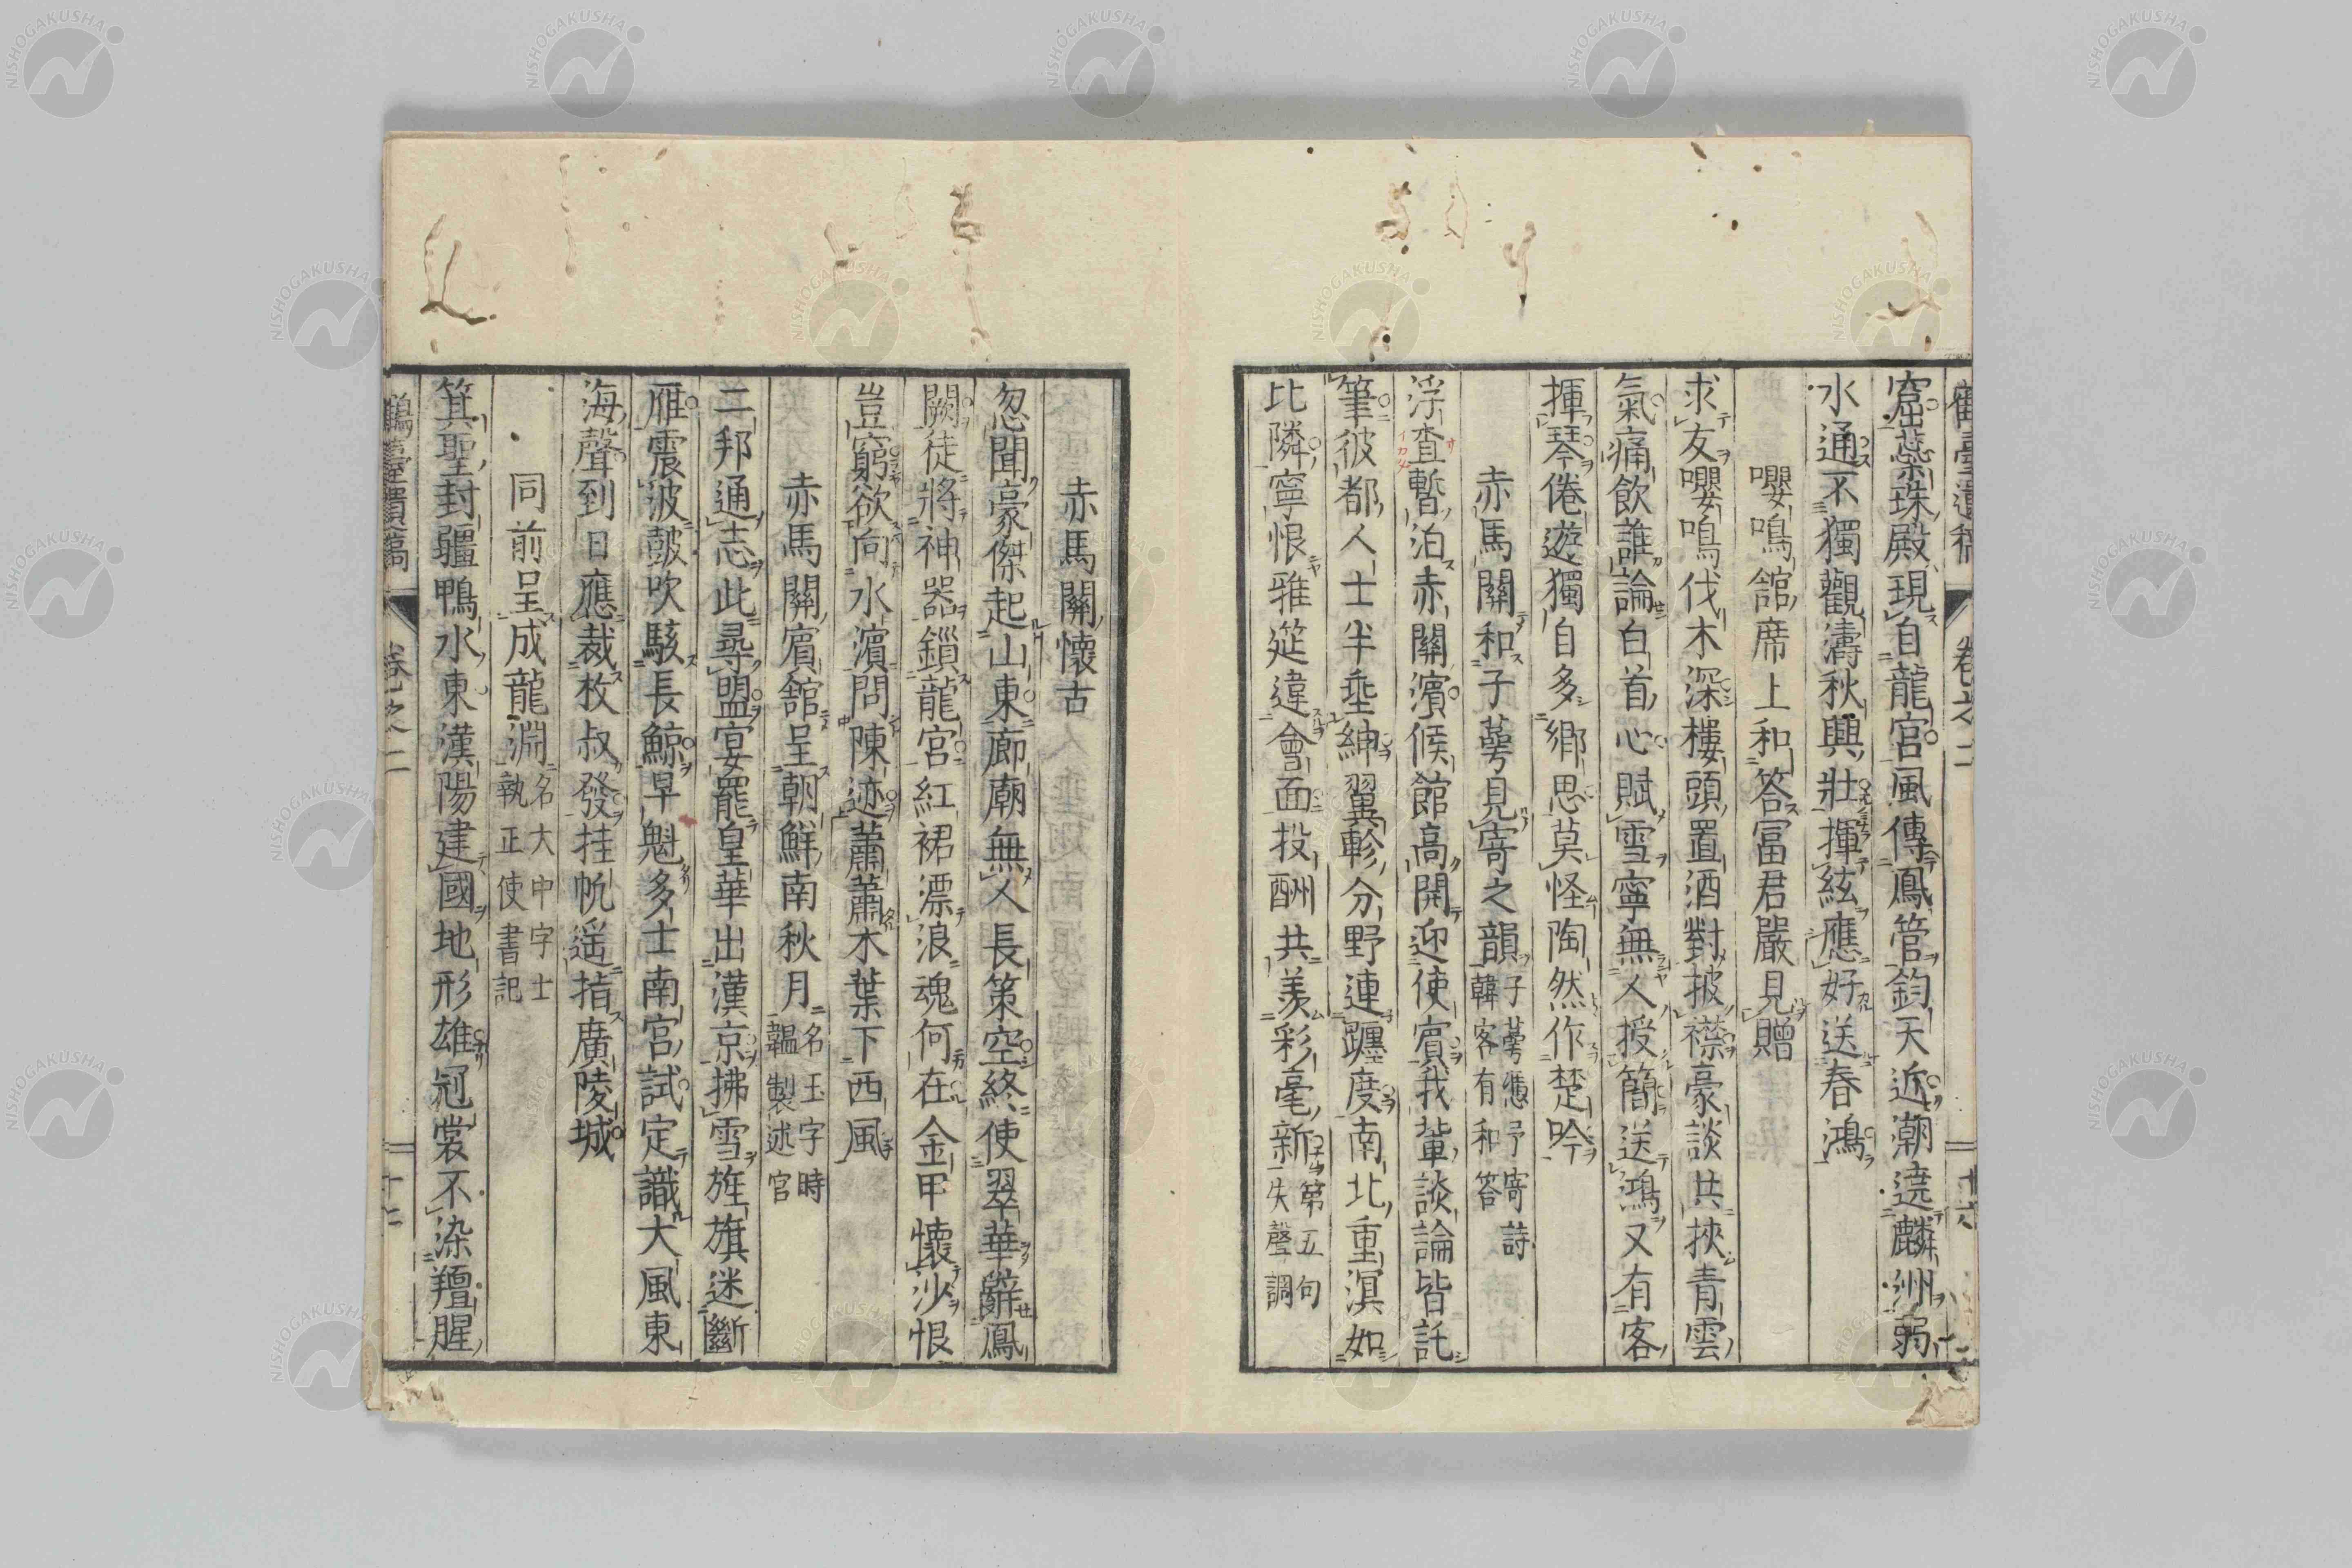 窟蘂珠殿現自龍宮風傳鳳管鈞天近潮遶麟洲弱
水通不獨觀濤秋興壯揮絃應好送春鴻
嚶鳴舘席上和答冨君嚴見贈
求友嚶鳴伐木深樓頭置酒對披襟豪談共挾青雲
氣痛飲誰論白首心賦雪寧無人授簡送鴻又有客
揮琴倦遊獨自多鄉思莫怪陶然作楚吟
赤馬關和子蕚見寄之韻
子蕚憑予寄詩
韓客有和答
浮査暫泊赤關濱候館高開迎使賓我輩談論皆託
筆彼都人士半埀紳翼軫分野連躔度南北重溟如
比隣寧恨雅筵違會面投酬共羨彩毫新
第五句
失聲調
赤馬關懷古
忽聞豪傑起山東廊廟無人長策空終使翠華辭鳳
闕徒將神器鎖龍宮紅裙漂浪魂何在金甲懷沙恨
豈窮欲向水濱問陳迹蕭蕭木葉下西風
赤馬關賓舘呈朝鮮南秋月
名玉字時
韞製述官
二邦通志此尋盟宴罷皇華出漢京拂雪旌旗迷斷
雁震波皷吹駭長鯨早魁多士南宮試定識大風東
海聲到日應裁枚叔發挂帆遥指廣陵城
同前呈成龍淵
名大中字士
執正使書記
箕聖封疆鴨水東漢陽建國地形雄冠裳不染羶腥
鶴臺遺稿
卷之二